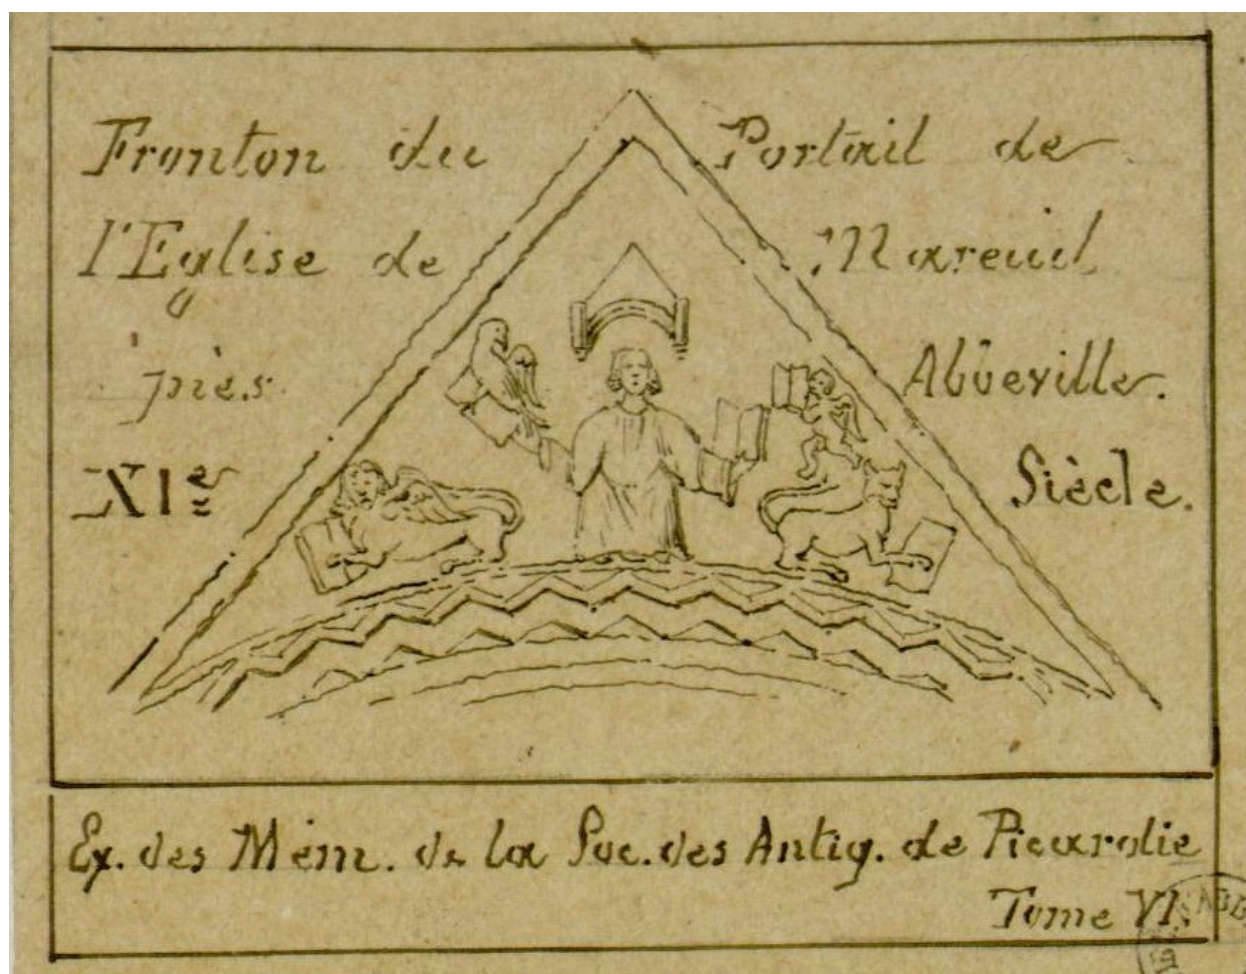 Fronton du Portail de
l'Eglise de Mareuil
près Abbeville.
XIe Siècle.
Ex. des Mém. de la Soc. des Antiq. de Picardie
Tome VI.
ABB